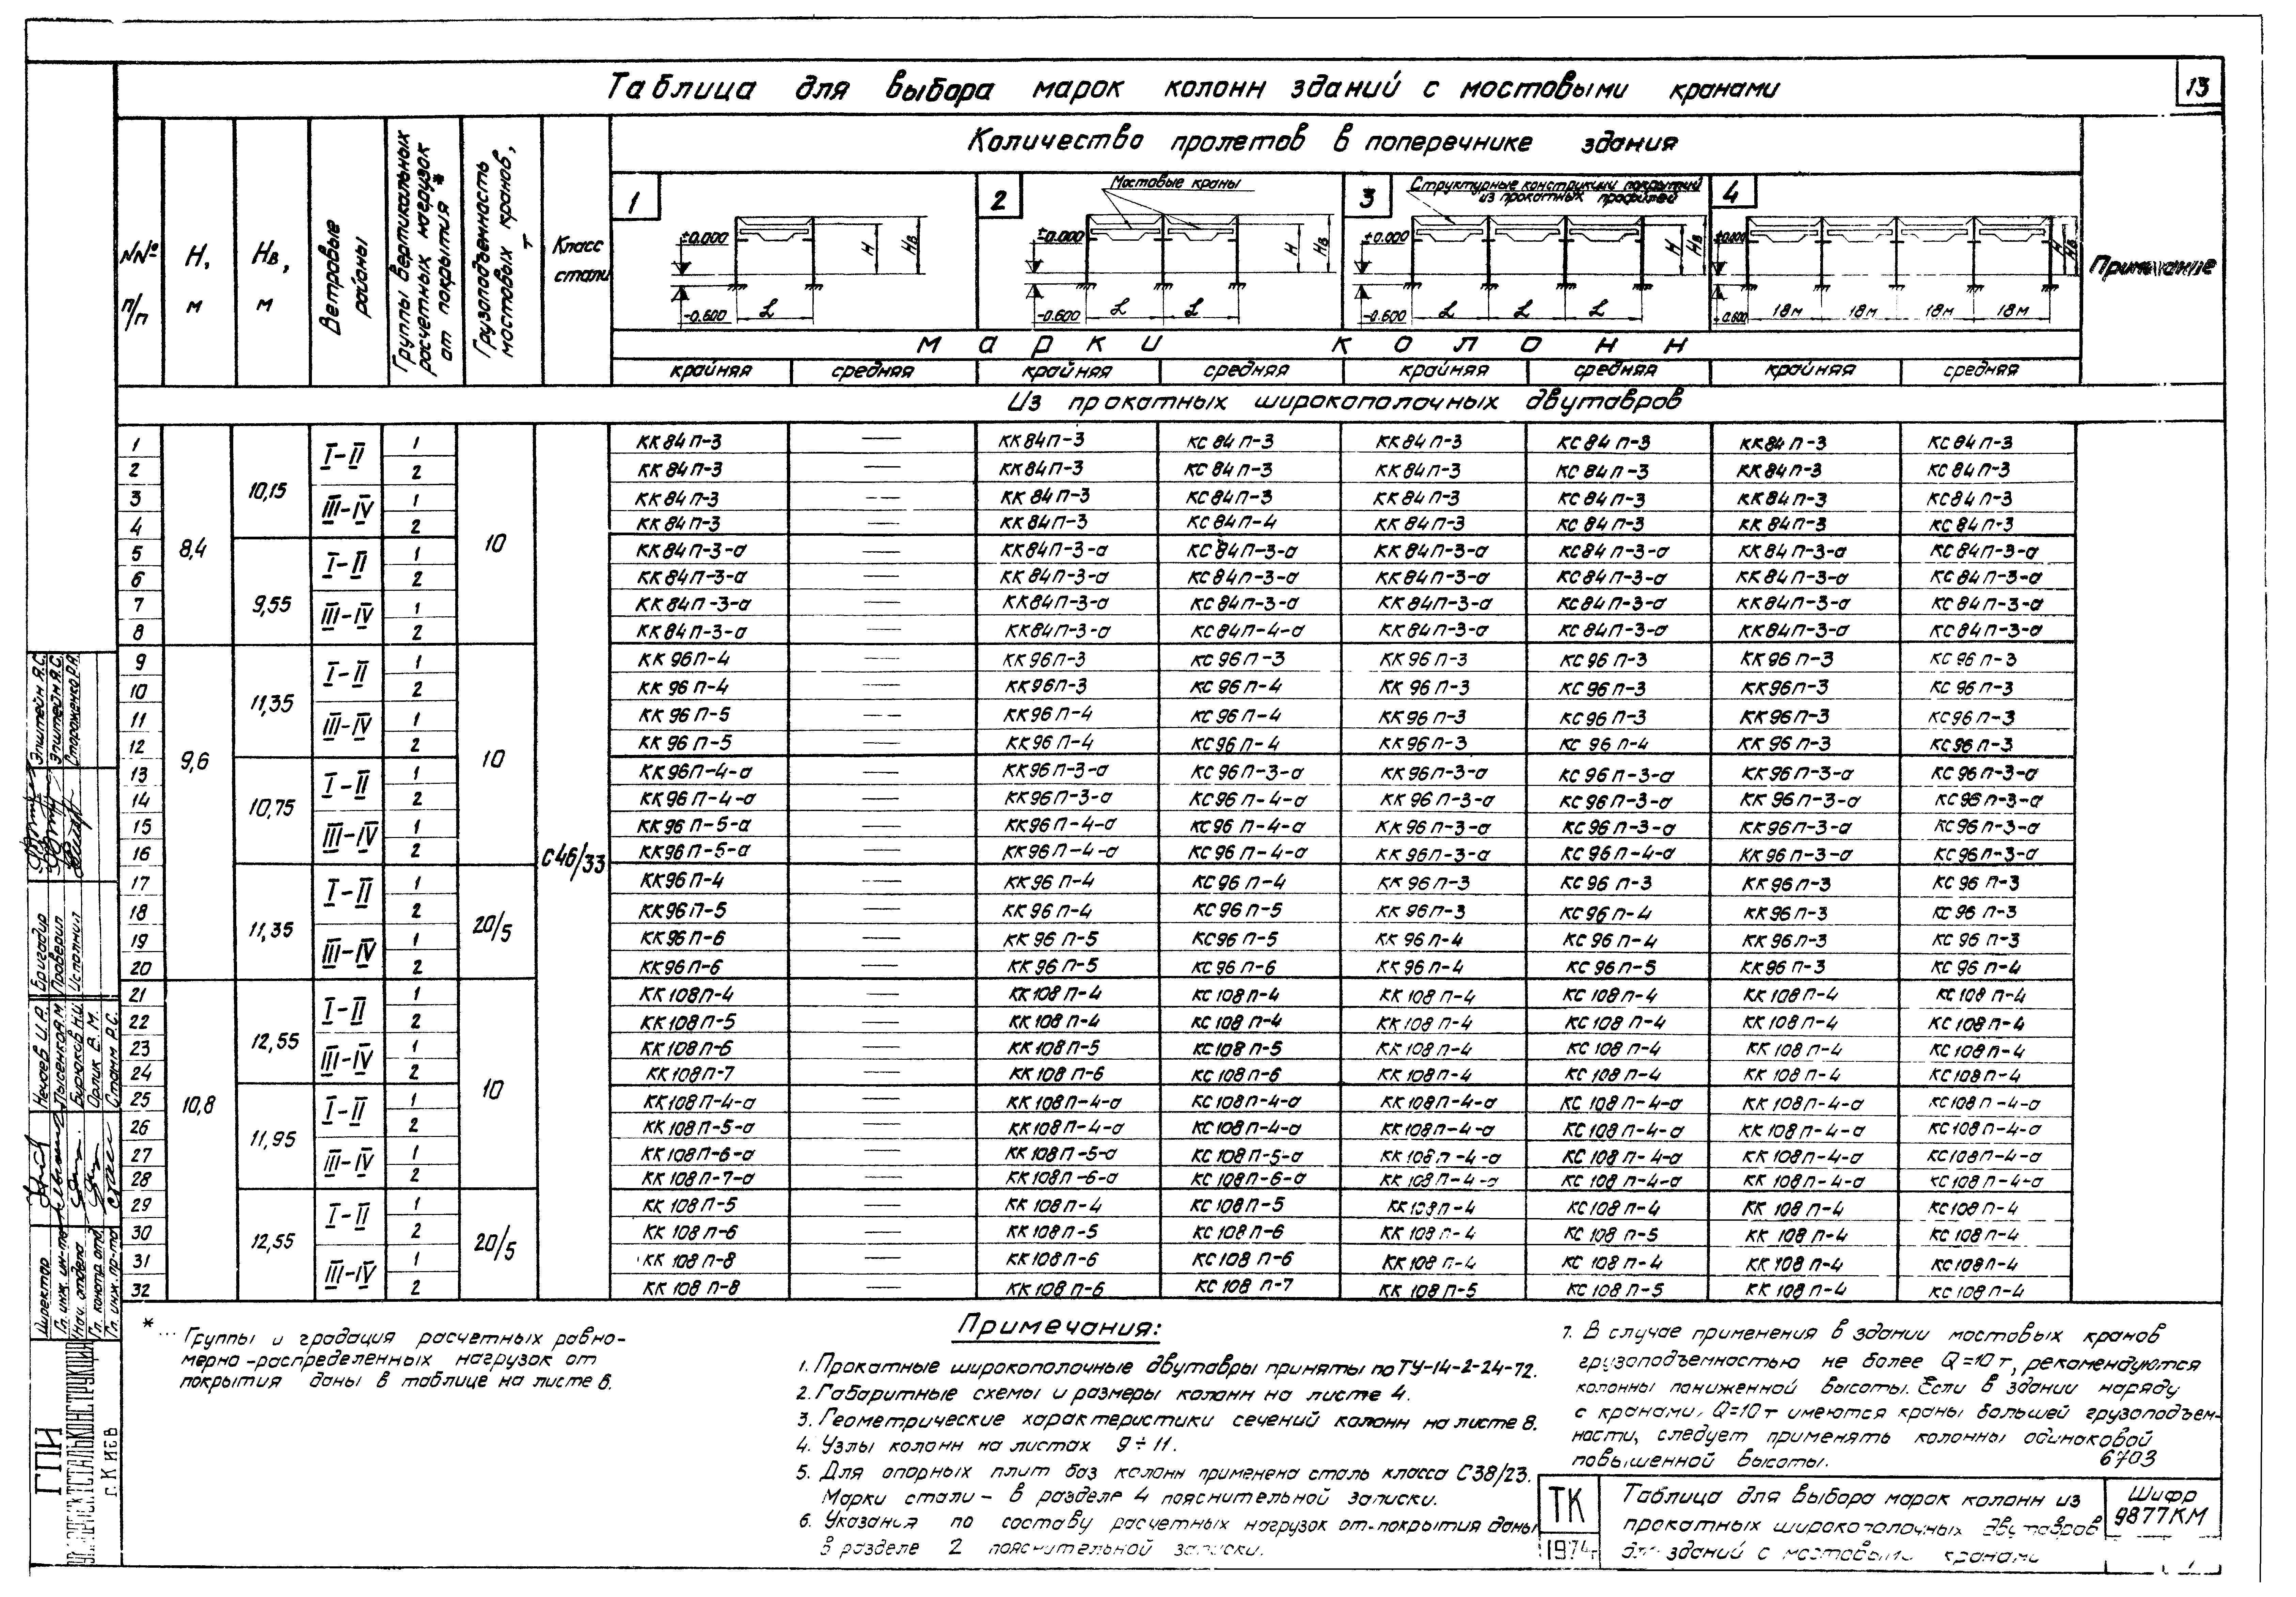 Таблица для выбора марок колонн зданий с мостовыми кранами
13
NN№ п/п
H, м
Hв, м
Ветровые районы
Группы вертикальных расчетных нагрузок от покрытия *
Грузоподъемность мостовых кранов, т
Класс стали
Количество пролетов в поперечнике здания
Примечание
1
2
Мостовые краны
3
Структурные конструкции покрытий
из прокатных профилей
4
±0.000 H Hв ±0.000 H Hв ±0.000 H Hв ±0.000 H Hв
-0.600 L -0.600 L L -0.600 L L L -0.600 18м 18м 18м 18м
Марки колонн
крайняя средняя крайняя средняя крайняя средняя крайняя средняя
Из прокатных широкополочных двутавров
1 8,4 10,15 I-II 1 10 С46/33 КК84П-3 — КК84П-3 КС84П-3 КК84П-3 КС84П-3 КК84П-3 КС84П-3
2 2 КК84П-3 — КК84П-3 КС84П-3 КК84П-3 КС84П-3 КК84П-3 КС84П-3
3 III-IV 1 КК84П-3 — КК84П-3 КС84П-3 КК84П-3 КС84П-3 КК84П-3 КС84П-3
4 2 КК84П-3 — КК84П-3 КС84П-4 КК84П-3 КС84П-3 КК84П-3 КС84П-3
5 9,55 I-II 1 КК84П-3-а — КК84П-3-а КС84П-3-а КК84П-3-а КС84П-3-а КК84П-3-а КС84П-3-а
6 2 КК84П-3-а — КК84П-3-а КС84П-3-а КК84П-3-а КС84П-3-а КК84П-3-а КС84П-3-а
7 III-IV 1 КК84П-3-а — КК84П-3-а КС84П-3-а КК84П-3-а КС84П-3-а КК84П-3-а КС84П-3-а
8 2 КК84П-3-а — КК84П-3-а КС84П-4-а КК84П-3-а КС84П-3-а КК84П-3-а КС84П-3-а
9 9,6 11,35 I-II 1 10 КК96П-4 — КК96П-3 КС96П-3 КК96П-3 КС96П-3 КК96П-3 КС96П-3
10 2 КК96П-4 — КК96П-3 КС96П-4 КК96П-3 КС96П-3 КК96П-3 КС96П-3
11 III-IV 1 КК96П-5 — КК96П-4 КС96П-4 КК96П-3 КС96П-3 КК96П-3 КС96П-3
12 2 КК96П-5 — КК96П-4 КС96П-4 КК96П-3 КС96П-4 КК96П-3 КС96П-3
13 10,75 I-II 1 КК96П-4-а — КК96П-3-а КС96П-3-а КК96П-3-а КС96П-3-а КК96П-3-а КС96П-3-а
14 2 КК96П-4-а — КК96П-3-а КС96П-4-а КК96П-3-а КС96П-3-а КК96П-3-а КС96П-3-а
15 III-IV 1 КК96П-5-а — КК96П-4-а КС96П-4-а КК96П-3-а КС96П-3-а КК96П-3-а КС96П-3-а
16 2 КК96П-5-а — КК96П-4-а КС96П-4-а КК96П-3-а КС96П-4-а КК96П-3-а КС96П-3-а
17 11,35 I-II 1 20/5 КК96П-4 — КК96П-4 КС96П-4 КК96П-3 КС96П-3 КК96П-3 КС96П-3
18 2 КК96П-5 — КК96П-4 КС96П-5 КК96П-3 КС96П-4 КК96П-3 КС96П-3
19 III-IV 1 КК96П-6 — КК96П-5 КС96П-5 КК96П-4 КС96П-4 КК96П-3 КС96П-3
20 2 КК96П-6 — КК96П-5 КС96П-6 КК96П-4 КС96П-5 КК96П-3 КС96П-4
21 10,8 12,55 I-II 1 10 КК108П-4 — КК108П-4 КС108П-4 КК108П-4 КС108П-4 КК108П-4 КС108П-4
22 2 КК108П-5 — КК108П-4 КС108П-4 КК108П-4 КС108П-4 КК108П-4 КС108П-4
23 III-IV 1 КК108П-6 — КК108П-5 КС108П-5 КК108П-4 КС108П-4 КК108П-4 КС108П-4
24 2 КК108П-7 — КК108П-6 КС108П-6 КК108П-4 КС108П-4 КК108П-4 КС108П-4
25 11,95 I-II 1 КК108П-4-а — КК108П-4-а КС108П-4-а КК108П-4-а КС108П-4-а КК108П-4-а КС108П-4-а
26 2 КК108П-5-а — КК108П-4-а КС108П-4-а КК108П-4-а КС108П-4-а КК108П-4-а КС108П-4-а
27 III-IV 1 КК108П-6-а — КК108П-5-а КС108П-5-а КК108П-4-а КС108П-4-а КК108П-4-а КС108П-4-а
28 2 КК108П-7-а — КК108П-6-а КС108П-6-а КК108П-4-а КС108П-4-а КК108П-4-а КС108П-4-а
29 12,55 I-II 1 20/5 КК108П-5 — КК108П-4 КС108П-5 КК108П-4 КС108П-4 КК108П-4 КС108П-4
30 2 КК108П-6 — КК108П-5 КС108П-6 КК108П-4 КС108П-5 КК108П-4 КС108П-4
31 III-IV 1 КК108П-8 — КК108П-6 КС108П-6 КК108П-4 КС108П-4 КК108П-4 КС108П-4
32 2 КК108П-8 — КК108П-6 КС108П-7 КК108П-5 КС108П-5 КК108П-4 КС108П-4
* ... Группы и градация расчетных равно-
мерно-распределенных нагрузок от
покрытия даны в таблице на листе 6.
Примечания:
1. Прокатные широкополочные двутавры приняты по ТУ-14-2-24-72.
2. Габаритные схемы и размеры колонн на листе 4.
3. Геометрические характеристики сечений колонн на листе 8.
4. Узлы колонн на листах 9÷11.
5. Для опорных плит баз колонн применена сталь класса С38/23.
Марки стали - в разделе 4 пояснительной записки.
6. Указания по составу расчетных нагрузок от покрытия даны
в разделе 2 пояснительной записки.
7. В случае применения в здании мостовых кранов
грузоподъемностью не более Q=10т, рекомендуются
колонны пониженной высоты. Если в здании наряду
с кранами Q=10т имеются краны большей грузоподъем-
ности, следует применять колонны одинаковой
повышенной высоты.
6703
ТК
1974г
Таблица для выбора марок колонн из
прокатных широкополочных двутавров
для зданий с мостовыми кранами
Шифр
9877КМ
Эпштейн Я.С.
Эпштейн Я.С.
Стороженко Р.А.
Бригадир
Проверил
Исполнил
Нечаев И.Р.
Лысенков М.
Бурюков Н.И.
Орлик В.М.
Стамм Р.С.
Директор
Гл. инж. ин-та
Нач. отдела
Гл. констр. отд.
Гл. инж. пр-та
ГПИ
УКРПРОЕКТСТАЛЬКОНСТРУКЦИЯ
г. Киев